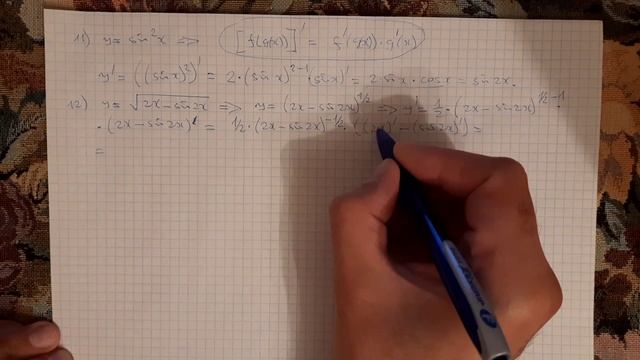 11) y = sin²x => [f(g(x))]' = f'(g(x))·g'(x)
y' = ((sinx)²)' = 2·(sinx)²⁻¹·(sinx)' = 2sinx·cosx = sin2x.
12) y = √(2x-sin2x) => y = (2x-sin2x)^1/2 => y' = 1/2·(2x-sin2x)^1/2-1·
·(2x-sin2x)' = 1/2·(2x-sin2x)^-1/2·((2x)'-(sin2x)') =
=